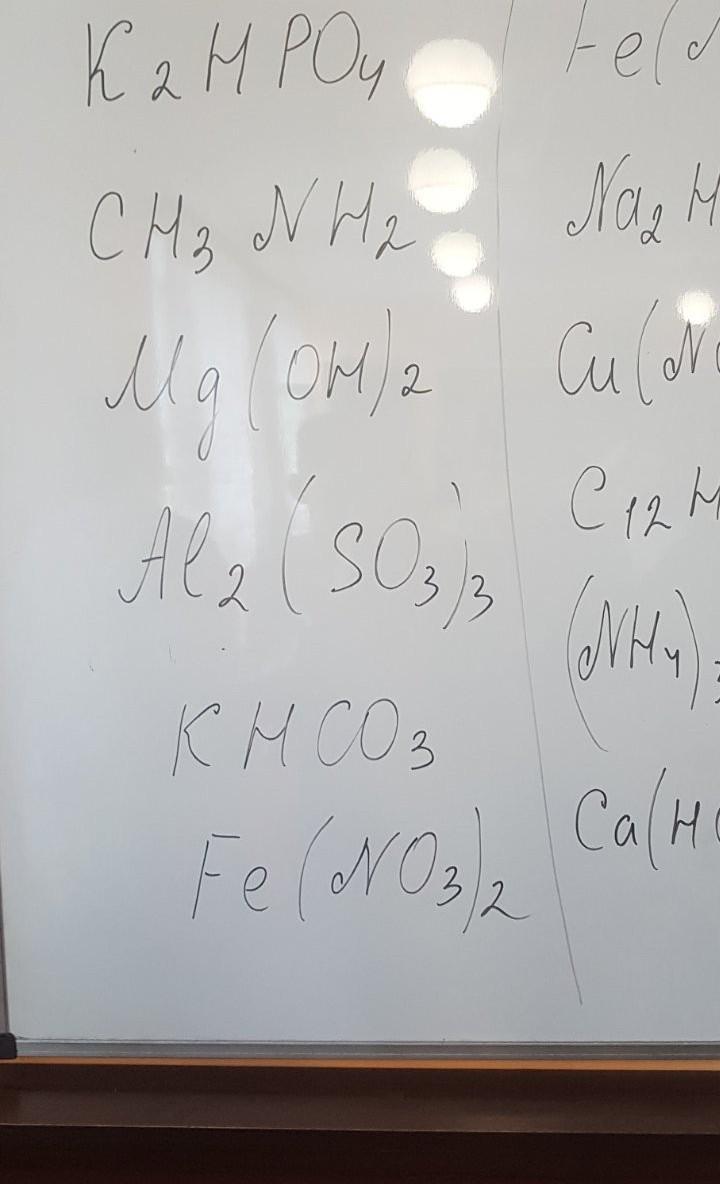 K₂HPO₄
CH₃NH₂
Mg(OH)₂
Al₂(SO₃)₃
KHCO₃
Fe(NO₃)₂
Fe(N
Na₂H
Cu(N
C₁₂H
(NH₄)
Ca(H